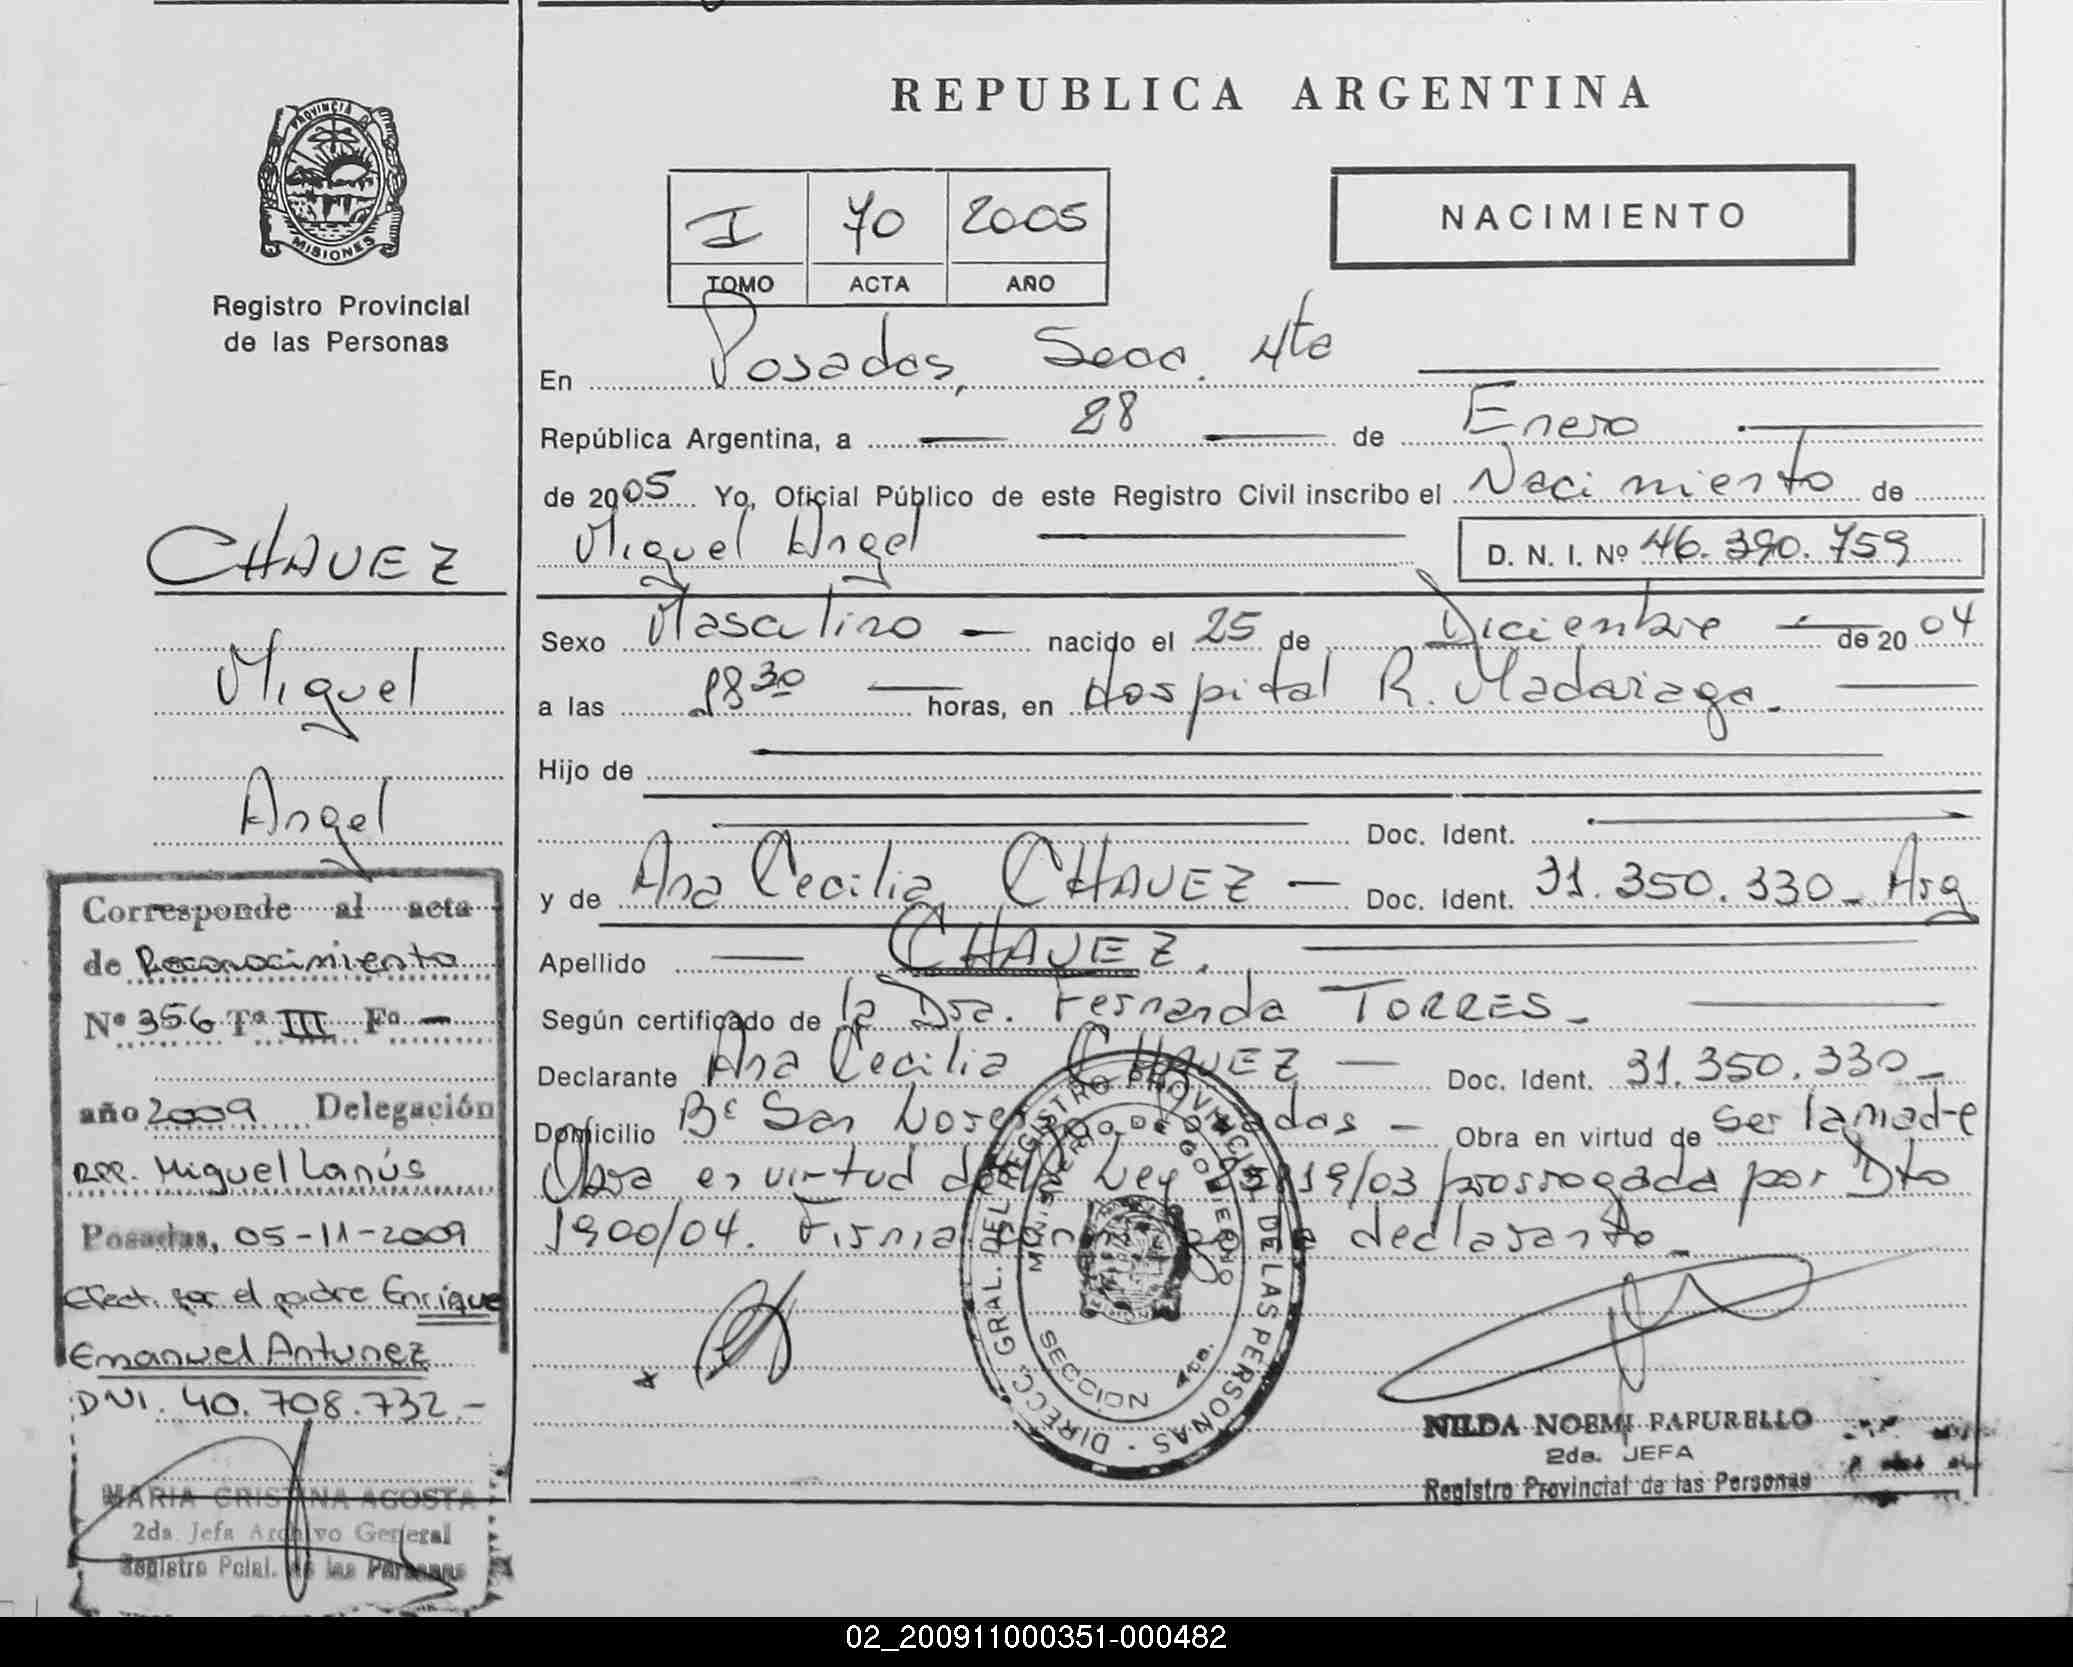 REPUBLICA ARGENTINA
PROVINCIA DE
MISIONES
Registro Provincial
de las Personas
I 70 2005
TOMO ACTA AÑO
NACIMIENTO
En Posadas, Secc. 4ta
República Argentina, a 28 de Enero
de 2005 Yo, Oficial Público de este Registro Civil inscribo el Nacimiento de
Miguel Angel D. N. I. Nº 46.390.759
Sexo Masculino nacido el 25 de Diciembre de 2004
a las 18 30 horas, en Hospital R. Madariaga.
Hijo de
Doc. Ident.
y de Ana Cecilia CHAVEZ Doc. Ident. 31.350.330 Arg
Apellido CHAVEZ.
Según certificado de la Dra. Fernanda TORRES
Declarante Ana Cecilia CHAVEZ Doc. Ident. 31.350.330
Domicilio Bº San Posadas Obra en virtud de Ser la madre
Obra en virtud de la Ley 25819/03 prorrogada por Dto
1900/04. Firma la declarante
DIRECC. GRAL. DEL REGISTRO PROVINCIAL DE LAS PERSONAS
MINISTERIO GOBIERNO
SECCION 4ta.
NILDA NOEMI PAPURELLO
2da. JEFA
Registro Provincial de las Personas
CHAVEZ
Miguel
Angel
Corresponde al acta
de Reconocimiento
Nº 356 Tº III Fº -
año 2009 Delegación
RPP. Miguel Lanús
Posadas, 05-11-2009
Efect. por el padre Enrique
Emanuel Antunez
DNI. 40.708.732.-
MARIA CRISTINA ACOSTA
2da. Jefa Archivo General
Registro Pcial. de las Personas
02_200911000351-000482